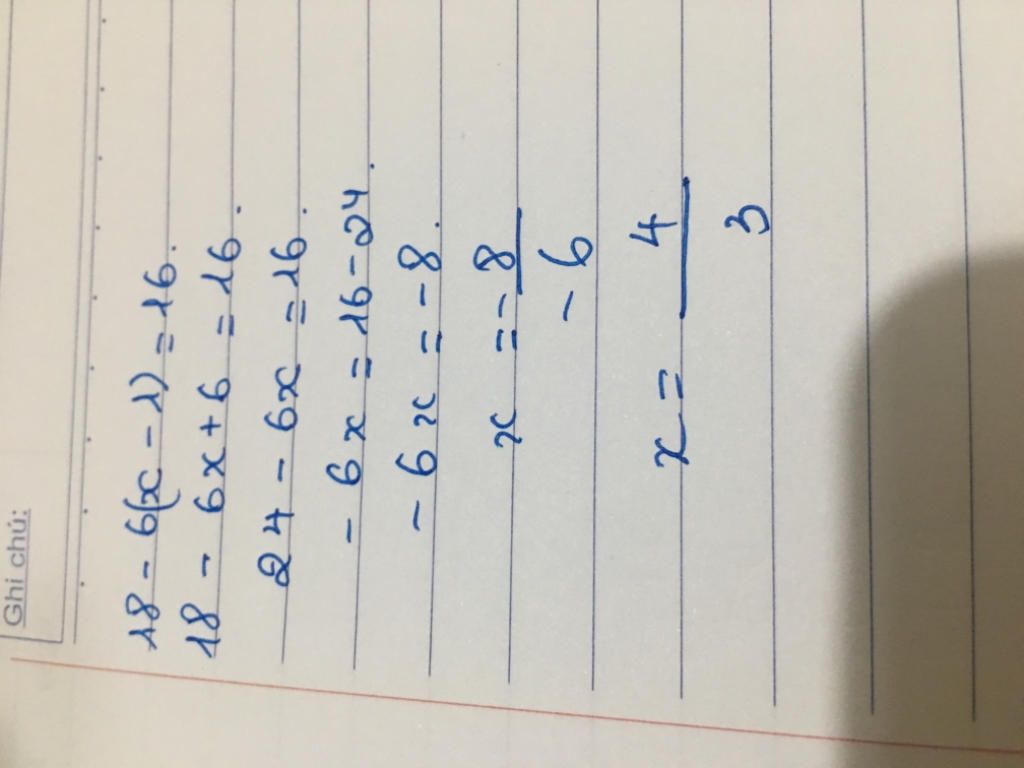 Ghi chú:
18 - 6(x - 1) = 16.
18 - 6x + 6 = 16.
24 - 6x = 16.
- 6x = 16 - 24.
- 6x = - 8.
x = - 8
- 6
x = 4
3